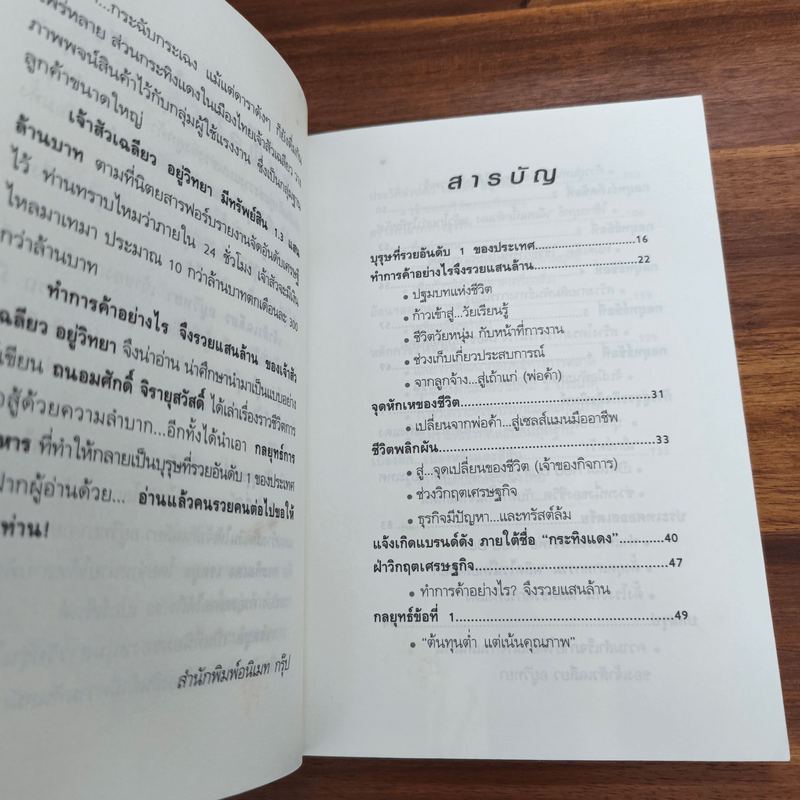 ...กระฉับกระเฉง แม้แต่ดาราดังๆ ก็ยัง
แพร่หลาย ส่วนกระทิงแดงในเมืองไทยเจ้าสัวเฉลียว วาง
ภาพพจน์สินค้าไว้กับกลุ่มผู้ใช้แรงงาน ซึ่งเป็นกลุ่มฐาน
ลูกค้าขนาดใหญ่
เจ้าสัวเฉลียว อยู่วิทยา มีทรัพย์สิน 1.3 แสน
ล้านบาท ตามที่นิตยสารฟอร์บรายงานจัดอันดับเศรษฐี
ไว้ ท่านทราบไหมว่าภายใน 24 ชั่วโมง เจ้าสัวจะมีเงิน
ไหลมาเทมา ประมาณ 10 กว่าล้านบาทตกเดือนละ 300
กว่าล้านบาท
ทำการค้าอย่างไร จึงรวยแสนล้าน ของเจ้าสัว
เฉลียว อยู่วิทยา จึงน่าอ่าน น่าศึกษานำมาเป็นแบบอย่าง
เขียน ถนอมศักดิ์ จิรายุสวัสดิ์ ได้เล่าเรื่องราวชีวิตการ
สู้ด้วยความลำบาก...อีกทั้งได้นำเอา กลยุทธ์การ
หาร ที่ทำให้กลายเป็นบุรุษที่รวยอันดับ 1 ของประเทศ
ฝากผู้อ่านด้วย... อ่านแล้วคนรวยคนต่อไปขอให้
ท่าน!
สำนักพิมพ์อนิเมท กรุ๊ป
สารบัญ
บุรุษที่รวยอันดับ 1 ของประเทศ....................16
ทำการค้าอย่างไรจึงรวยแสนล้าน....................22
• ปฐมบทแห่งชีวิต
• ก้าวเข้าสู่...วัยเรียนรู้
• ชีวิตวัยหนุ่ม กับหน้าที่การงาน
• ช่วงเก็บเกี่ยวประสบการณ์
• จากลูกจ้าง...สู่เถ้าแก่ (พ่อค้า)
จุดหักเหของชีวิต....................31
• เปลี่ยนจากพ่อค้า...สู่เซลส์แมนมืออาชีพ
ชีวิตพลิกผัน....................33
• สู่...จุดเปลี่ยนของชีวิต (เจ้าของกิจการ)
• ช่วงวิกฤตเศรษฐกิจ
• ธุรกิจมีปัญหา...และทรัสต์ล้ม
แจ้งเกิดแบรนด์ดัง ภายใต้ชื่อ “กระทิงแดง”..........40
ฝ่าวิกฤตเศรษฐกิจ....................47
• ทำการค้าอย่างไร? จึงรวยแสนล้าน
กลยุทธ์ข้อที่ 1....................49
• “ต้นทุนต่ำ แต่เน้นคุณภาพ”